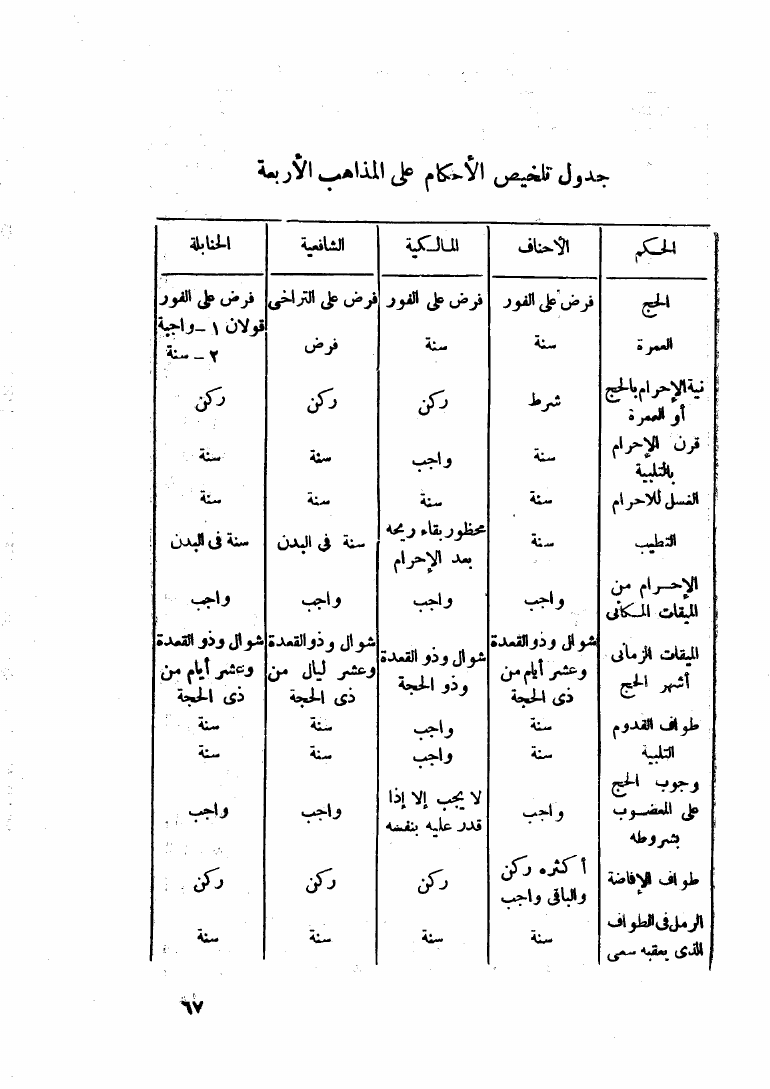 جدول تلخيص الأحكام على المذاهب الأربعة
الحكم الأحناف المالكية الشافعية الحنابلة
الحج فرض على الفور فرض على الفور فرض على التراخى فرض على الفور
العمرة سنة سنة فرض قولان ١ - واجبة
٢ - سنة
نية الإحرام بالحج شرط ركن ركن ركن
أو العمرة
قرن الإحرام سنة واجب سنة سنة
بالتلبية
الغسل للاحرام سنة سنة سنة سنة
التطيب سنة محظور بقاء ريحه سنة فى البدن سنة فى البدن
بعد الإحرام
الإحرام من واجب واجب واجب واجب
الميقات المكانى
الميقات الزمانى شوال وذو القعدة شوال وذو القعدة شوال وذو القعدة شوال وذو القعدة
أشهر الحج وعشر أيام من وذو الحجة وعشر ليال من وعشر أيام من
ذى الحجة ذى الحجة ذى الحجة
طواف القدوم سنة واجب سنة سنة
التلبية سنة واجب سنة سنة
وجوب الحج واجب لا يجب إلا إذا واجب واجب
على المعضوب قدر عليه بنفسه
بشروطه
طواف الإفاضة أكثره ركن ركن ركن ركن
والباقى واجب
الرمل فى الطواف سنة سنة سنة سنة
الذى يعقبه سعى
٦٧